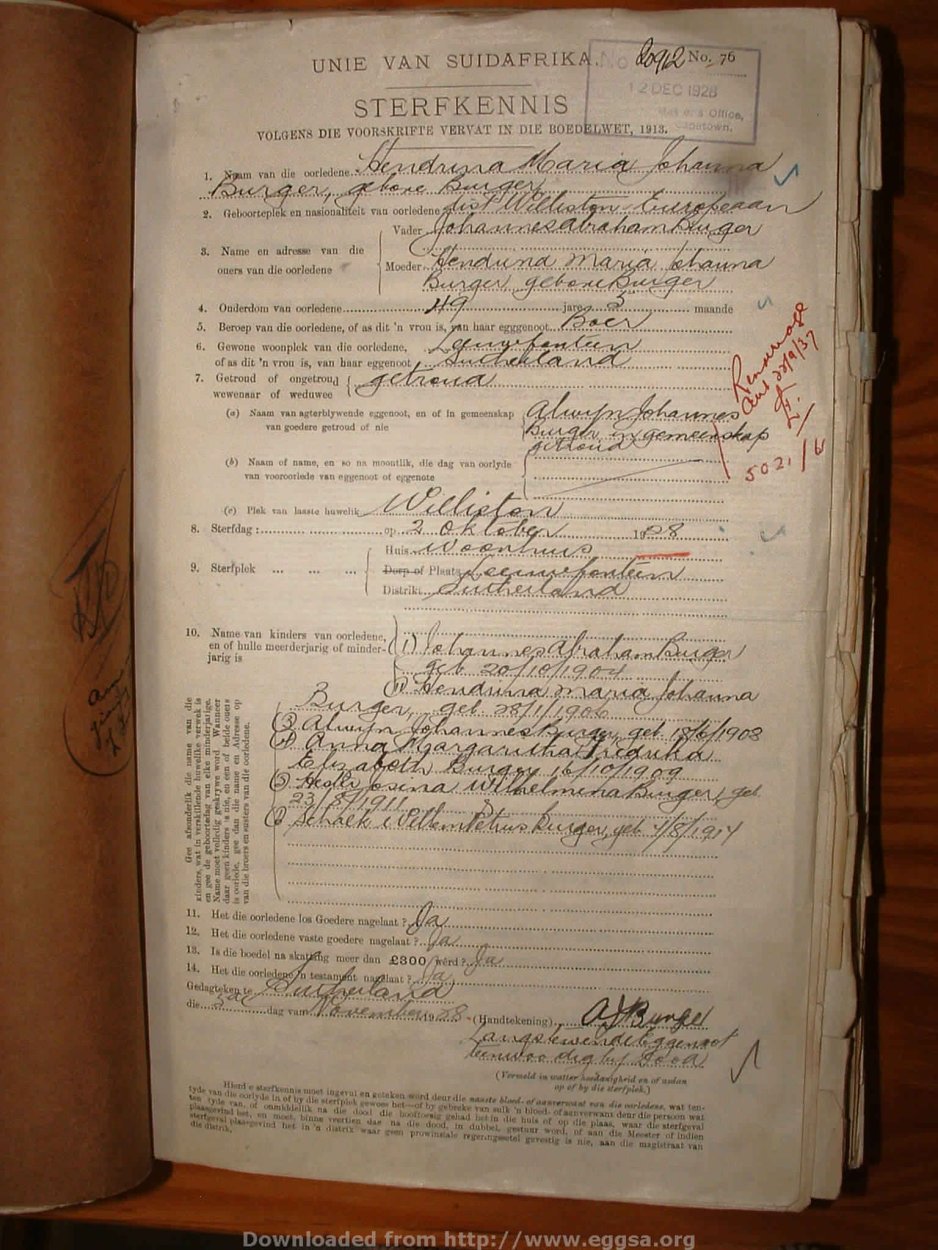 UNIE VAN SUIDAFRIKA. No 20912 No. 76
12 DEC 1928
Office,
Capetown.
STERFKENNIS
VOLGENS DIE VOORSKRIFTE VERVAT IN DIE BOEDELWET, 1913.
1. Naam van die oorledene Hendrina Maria Johanna
Burger, gebore Burger
2. Geboorteplek en nasionaliteit van oorledene dist Williston Europeaan
3. Name en adresse van die ouers van die oorledene
Vader Johannes Abraham Burger
Moeder Hendrina Maria Johanna
Burger gebore Burger
4. Onderdom van oorledene 49 jare 5 maande
5. Beroep van die oorledene, of as dit 'n vrou is, van haar egggenoot Boer
6. Gewone woonplek van die oorledene, Leeuwfontein
of as dit 'n vrou is, van haar eggenoot Sutherland
7. Getroud of ongetroud getroud
wewenaar of weduwee
(a) Naam van agterblywende eggenoot, en of in gemeenskap Alwyn Johannes
van goedere getroud of nie Burger in gemeenskap
getroud
(b) Naam of name, en so na moontlik, die dag van oorlyde
van vooroorlede van eggenoot of eggenote
(c) Plek van laaste huwelik Williston
8. Sterfdag: op 2 Oktober 1928
9. Sterfplek ... ... ...
Huis woonhuis
Dorp of Plaats Leeuwfontein
Distrikt Sutherland
Aut 22/9/37
5021/6
10. Name van kinders van oorledene,
en of hulle meerderjarig of minder-
jarig is
(1) Johannes Abraham Burger
geb 20/10/1904
Hendrina Maria Johanna
Burger, geb 28/1/1906
(3) Alwyn Johannes Burger, geb 13/6/1908
Anna Margaritha Fredrika
Elizabeth Burger 16/10/1909
(5) Hester Josina Wilhelmina Burger, geb
23/8/1911
(6) Schalk Willem Petrus Burger, geb 4/8/1914
Gee afsonderlik die name van die
kinders, wat in verskillende huwelike verwek is
en gee de geboortedag van elke minderjarige.
Name moet volledig geskrywe word. Wanneer
daar geen kinders is nie, en een of beide ouers
is oorlede, gee dan die name en Adresse op
van die broers en susters van die oorledene.
11. Het die oorledene los Goedere nagelaat? Ja
12. Het die oorledene vaste goedere nagelaat? Ja
13. Is die boedel na skatting meer dan £300 werd? Ja
14. Het die oorledene 'n testament nagelaat? Ja
Gedagteken te Sutherland
die 3de dag van November 1928 (Handtekening) AJ Burger
Langslewende Eggenoot
teenwoordig by dood
(Vermeld in watter hoedanigheid en of aadan
op of by die sterfplek.)
Hierdie sterfkennis moet ingevul en geteken word deur die naaste bloed- of aanverwant van die oorledene, wat ten-
tyde van die oorlyde in of by die sterfplek gewoes het—of by gebreke van sulk 'n bloed- of aanverwans deur die persoon wat
ten tyde van, of onmiddellik na die dood die hooftoesig gehad het in die huis of op die plaas, waar die sterfgeval
plaasgevind het, en moet, binne veertien dae na die dood, in dubbel, gestuur word, of aan die Meester of indien
sterfgeval plaasgevind het in 'n distrik waar geen provinsiale regeringsetel gevestig is nie, aan die magistraat van
die distrik.
Downloaded from http://www.eggsa.org